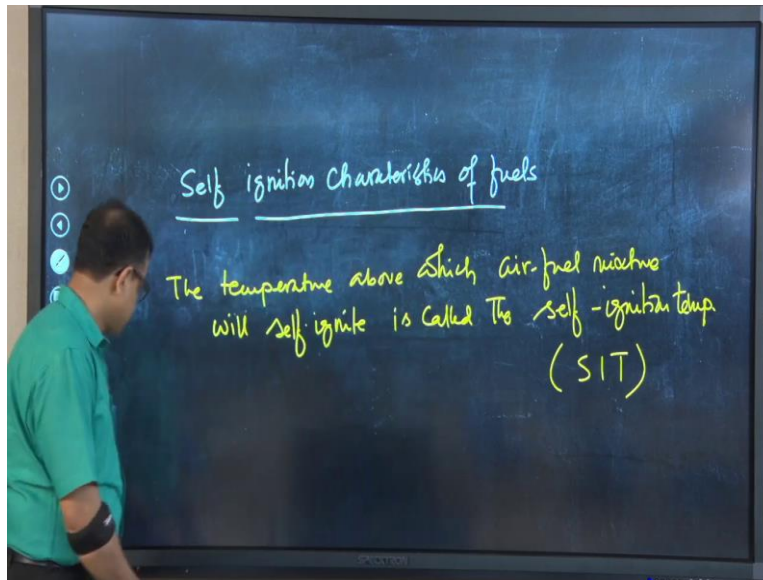 Self ignition Charateristics of fuels
The temperature above which air-fuel mixture
will self ignite is called the self-ignition temp.
(SIT)